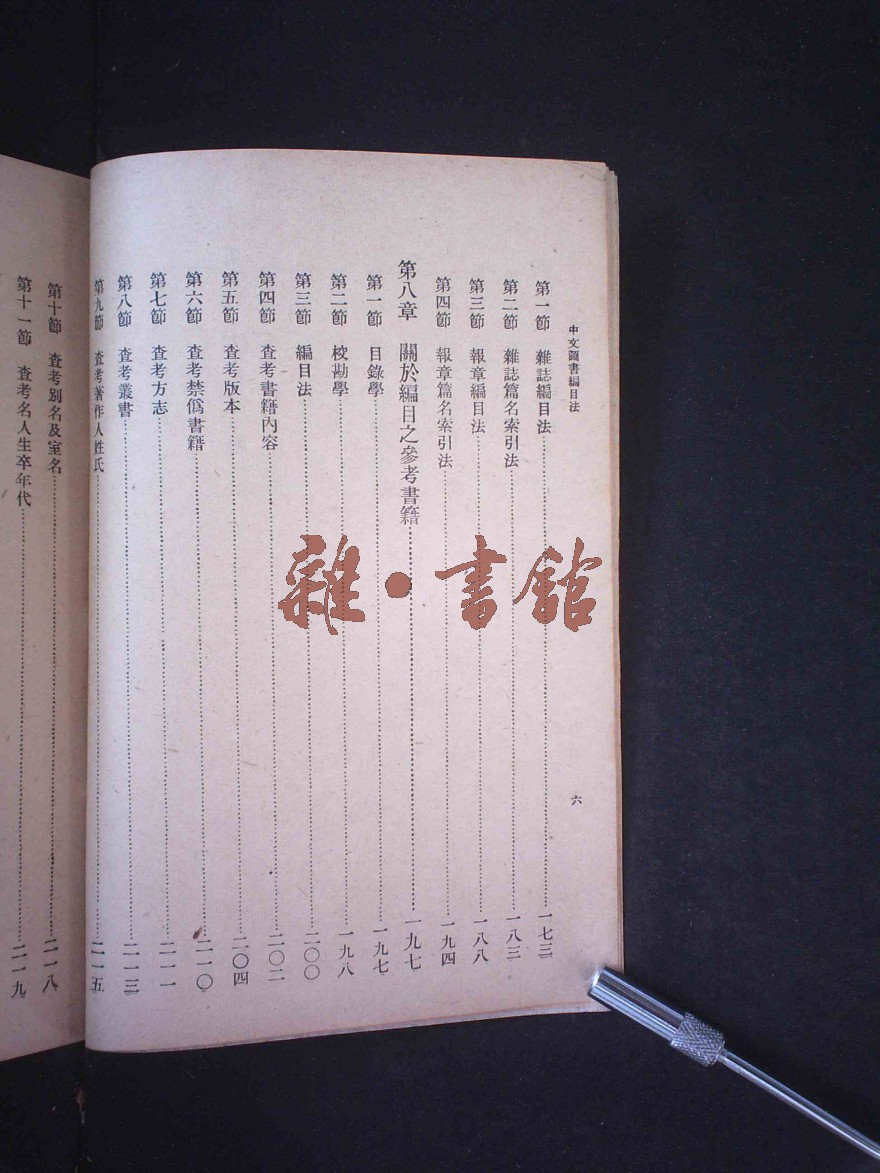 中文圖書編目法
六
第一節 雜誌編目法……一七三
第二節 雜誌篇名索引法……一八三
第三節 報章編目法……一八八
第四節 報章篇名索引法……一九四
第八章 關於編目之參考書籍……一九七
第一節 目錄學……一九七
第二節 校勘學……一九八
第三節 編目法……二〇〇
第四節 查考書籍內容……二〇二
第五節 查考版本……二〇四
第六節 查考禁僞書籍……二一〇
第七節 查考方志……二一一
第八節 查考叢書……二一三
第九節 查考著作人姓氏……二一五
第十節 查考別名及室名……二一八
第十一節 查考名人生卒年代……二一九
雜·書館